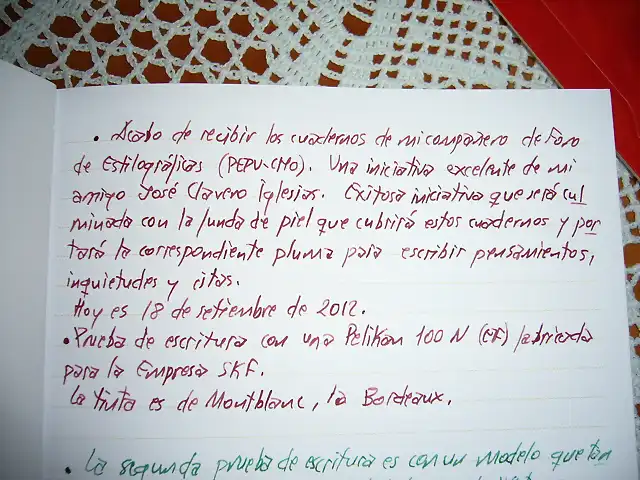 • Acabo de recibir los cuadernos de mi compañero de Foro
de Estilográficas (PEPU-CMO). Una iniciativa excelente de mi
amigo José Clavero Iglesias. Exitosa iniciativa que será cul
minada con la funda de piel que cubrirá estos cuadernos y por
tará la correspondiente pluma para escribir pensamientos,
inquietudes y citas.
Hoy es 18 de setiembre de 2012.
• Prueba de escritura con una Pelikan 100 N (EF) fabricada
para la Empresa SKF.
La tinta es de Montblanc, la Bordeaux.
• La segunda prueba de escritura es con un modelo que tan